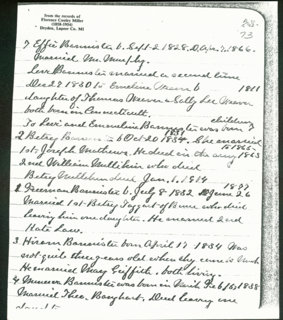 From the records of
Florence Cooley Miller
Dryden, Lapeer Co. MI
73
7. Effie Bannister b. Sept. 2 1828. D. Apr. 7, 1866.
Married M. Murphy.
Levi Bannister married a second time
to Emeline Weaver b 1811
daughter of Thomas Weaver & Sally Lee Weaver
both born in Connecticut.
To Levi and Emmeline Bannister was born 7 children
2. Betsy b Oct 20 1834. She married
1st. Joseph Mathews. He died in the army 1863
2nd William Millikin who died
Betsy Millikin died Jan. 1, 1914
2. Freeman Bannister b. July 8 1832 D. June 26 1897
Married 1st Betsy Taggart of Bruce who died
leaving him one daughter. He married 2nd
Kate Law.
3. Hiram Bannister born April 17 1834 Was
not quite three years old when they came to Mich
He married Mary Griffith, both living.
4. Bannister was born in Mich Feb 1838
Married Theo. Died leaving one